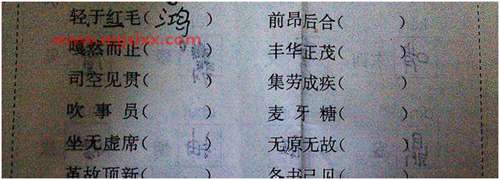 轻于红毛(鸿) 前昂后合( )
嘎然而止( ) 丰华正茂( )
司空见贯( ) 集劳成疾( )
吹事员( ) 麦牙糖( )
坐无虚席( ) 无原无故( )
革故顶新( 各书己见(